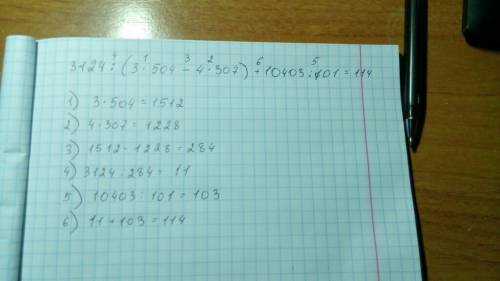 4 1 3 2 6 5
3124 : (3 · 504 - 4 · 307) + 10403 : 101 = 114
1) 3 · 504 = 1512
2) 4 · 307 = 1228
3) 1512 - 1228 = 284
4) 3124 : 284 = 11
5) 10403 : 101 = 103
6) 11 + 103 = 114